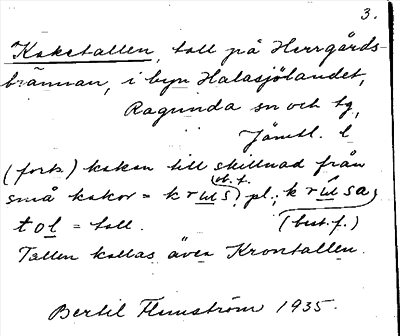 3.
Koketallen, tall på Herrgårds-
brännan, i byn Halasjölandet,
Ragunda sn och tg,
Jämtl. l
(forts.) kakan till skillnad från
små kakor = krɯs (ob. f.), pl.; krɯsa,
tol = tall. (best. f.)
Tallen kallas även Krontallen.
Bertil Flemström 1935.